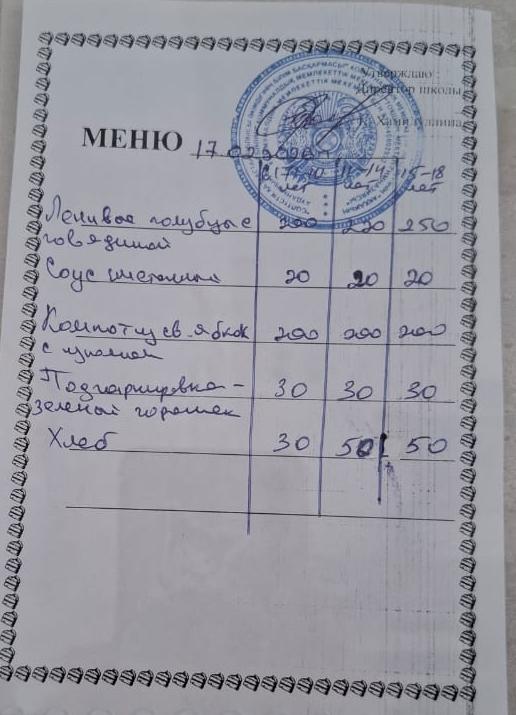 Утверждаю:
Директор школы
Хамидуллина
МЕНЮ 17.02.2026г
с 7-10 11-14 15-18
лет лет лет
Ленивые голубцы с 200 220 250
говядиной
Соус сметанный 20 20 20
Компот из св. яблок 200 200 200
с лимоном
Подгарнировка - 30 30 30
зеленый горошек
Хлеб 30 50 50